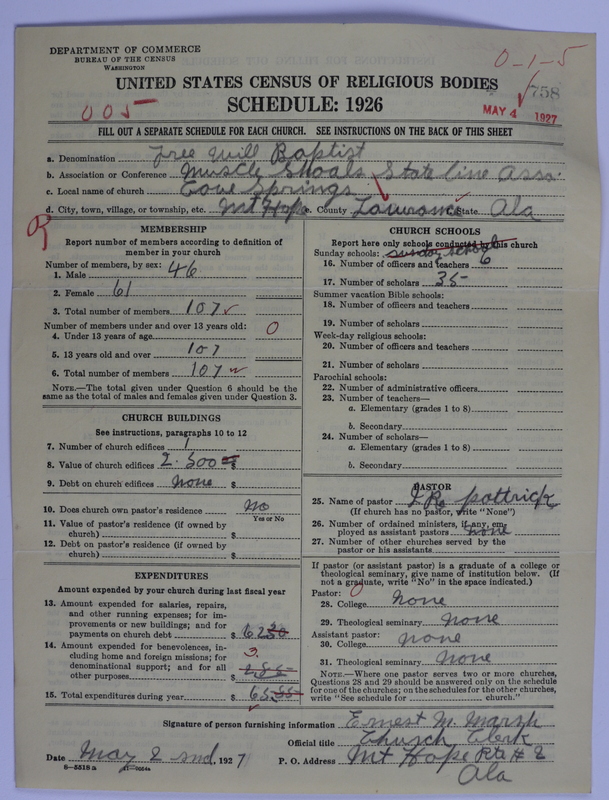 DEPARTMENT OF COMMERCE
BUREAU OF THE CENSUS
WASHINGTON
0-1-5
758
UNITED STATES CENSUS OF RELIGIOUS BODIES
SCHEDULE: 1926
005
MAY 4 1927
FILL OUT A SEPARATE SCHEDULE FOR EACH CHURCH. SEE INSTRUCTIONS ON THE BACK OF THIS SHEET
a. Denomination Free Will Baptist
b. Association or Conference Muscle Shoals State line Asso.
c. Local name of church Cove Springs
d. City, town, village, or township, etc. Mt Hope County Lawrance State Ala
MEMBERSHIP
Report number of members according to definition of
member in your church
Number of members, by sex:
1. Male 46
2. Female 61
3. Total number of members 107
Number of members under and over 13 years old:
4. Under 13 years of age 0
5. 13 years old and over 107
6. Total number of members 107
NOTE.—The total given under Question 6 should be the
same as the total of males and females given under Question 3.
CHURCH BUILDINGS
See instructions, paragraphs 10 to 12
7. Number of church edifices 1
8. Value of church edifices 2.500 $
9. Debt on church edifices none $
10. Does church own pastor's residence No
Yes or No
11. Value of pastor's residence (if owned by
church) $
12. Debt on pastor's residence (if owned by
church) $
EXPENDITURES
Amount expended by your church during last fiscal year
13. Amount expended for salaries, repairs,
and other running expenses; for im-
provements or new buildings; and for
payments on church debt $ 62
14. Amount expended for benevolences, in-
cluding home and foreign missions; for
denominational support; and for all
other purposes $ 3.
15. Total expenditures during year $ 65
CHURCH SCHOOLS
Report here only schools conducted by this church
Sunday schools: Sunday School
16. Number of officers and teachers 6
17. Number of scholars 35
Summer vacation Bible schools:
18. Number of officers and teachers
19. Number of scholars
Week-day religious schools:
20. Number of officers and teachers
21. Number of scholars
Parochial schools:
22. Number of administrative officers
23. Number of teachers—
a. Elementary (grades 1 to 8)
b. Secondary
24. Number of scholars—
a. Elementary (grades 1 to 8)
b. Secondary
PASTOR
25. Name of pastor Pattrick
(If church has no pastor, write "None")
26. Number of ordained ministers, if any, em-
ployed as assistant pastors none
27. Number of other churches served by the
pastor or his assistants
If pastor (or assistant pastor) is a graduate of a college or
theological seminary, give name of institution below. (If
not a graduate, write "No" in the space indicated.)
Pastor: 0
28. College none
29. Theological seminary none
Assistant pastor:
30. College none
31. Theological seminary None
NOTE.—Where one pastor serves two or more churches,
Questions 28 and 29 should be answered only on the schedule
for one of the churches; on the schedules for the other churches,
write "See schedule for church."
Signature of person furnishing information Ernest M. Marsh
Official title Church Clerk
Date May 2 snd, 1927 P. O. Address Mt Hope Rte # 2
Ala
8—5518a